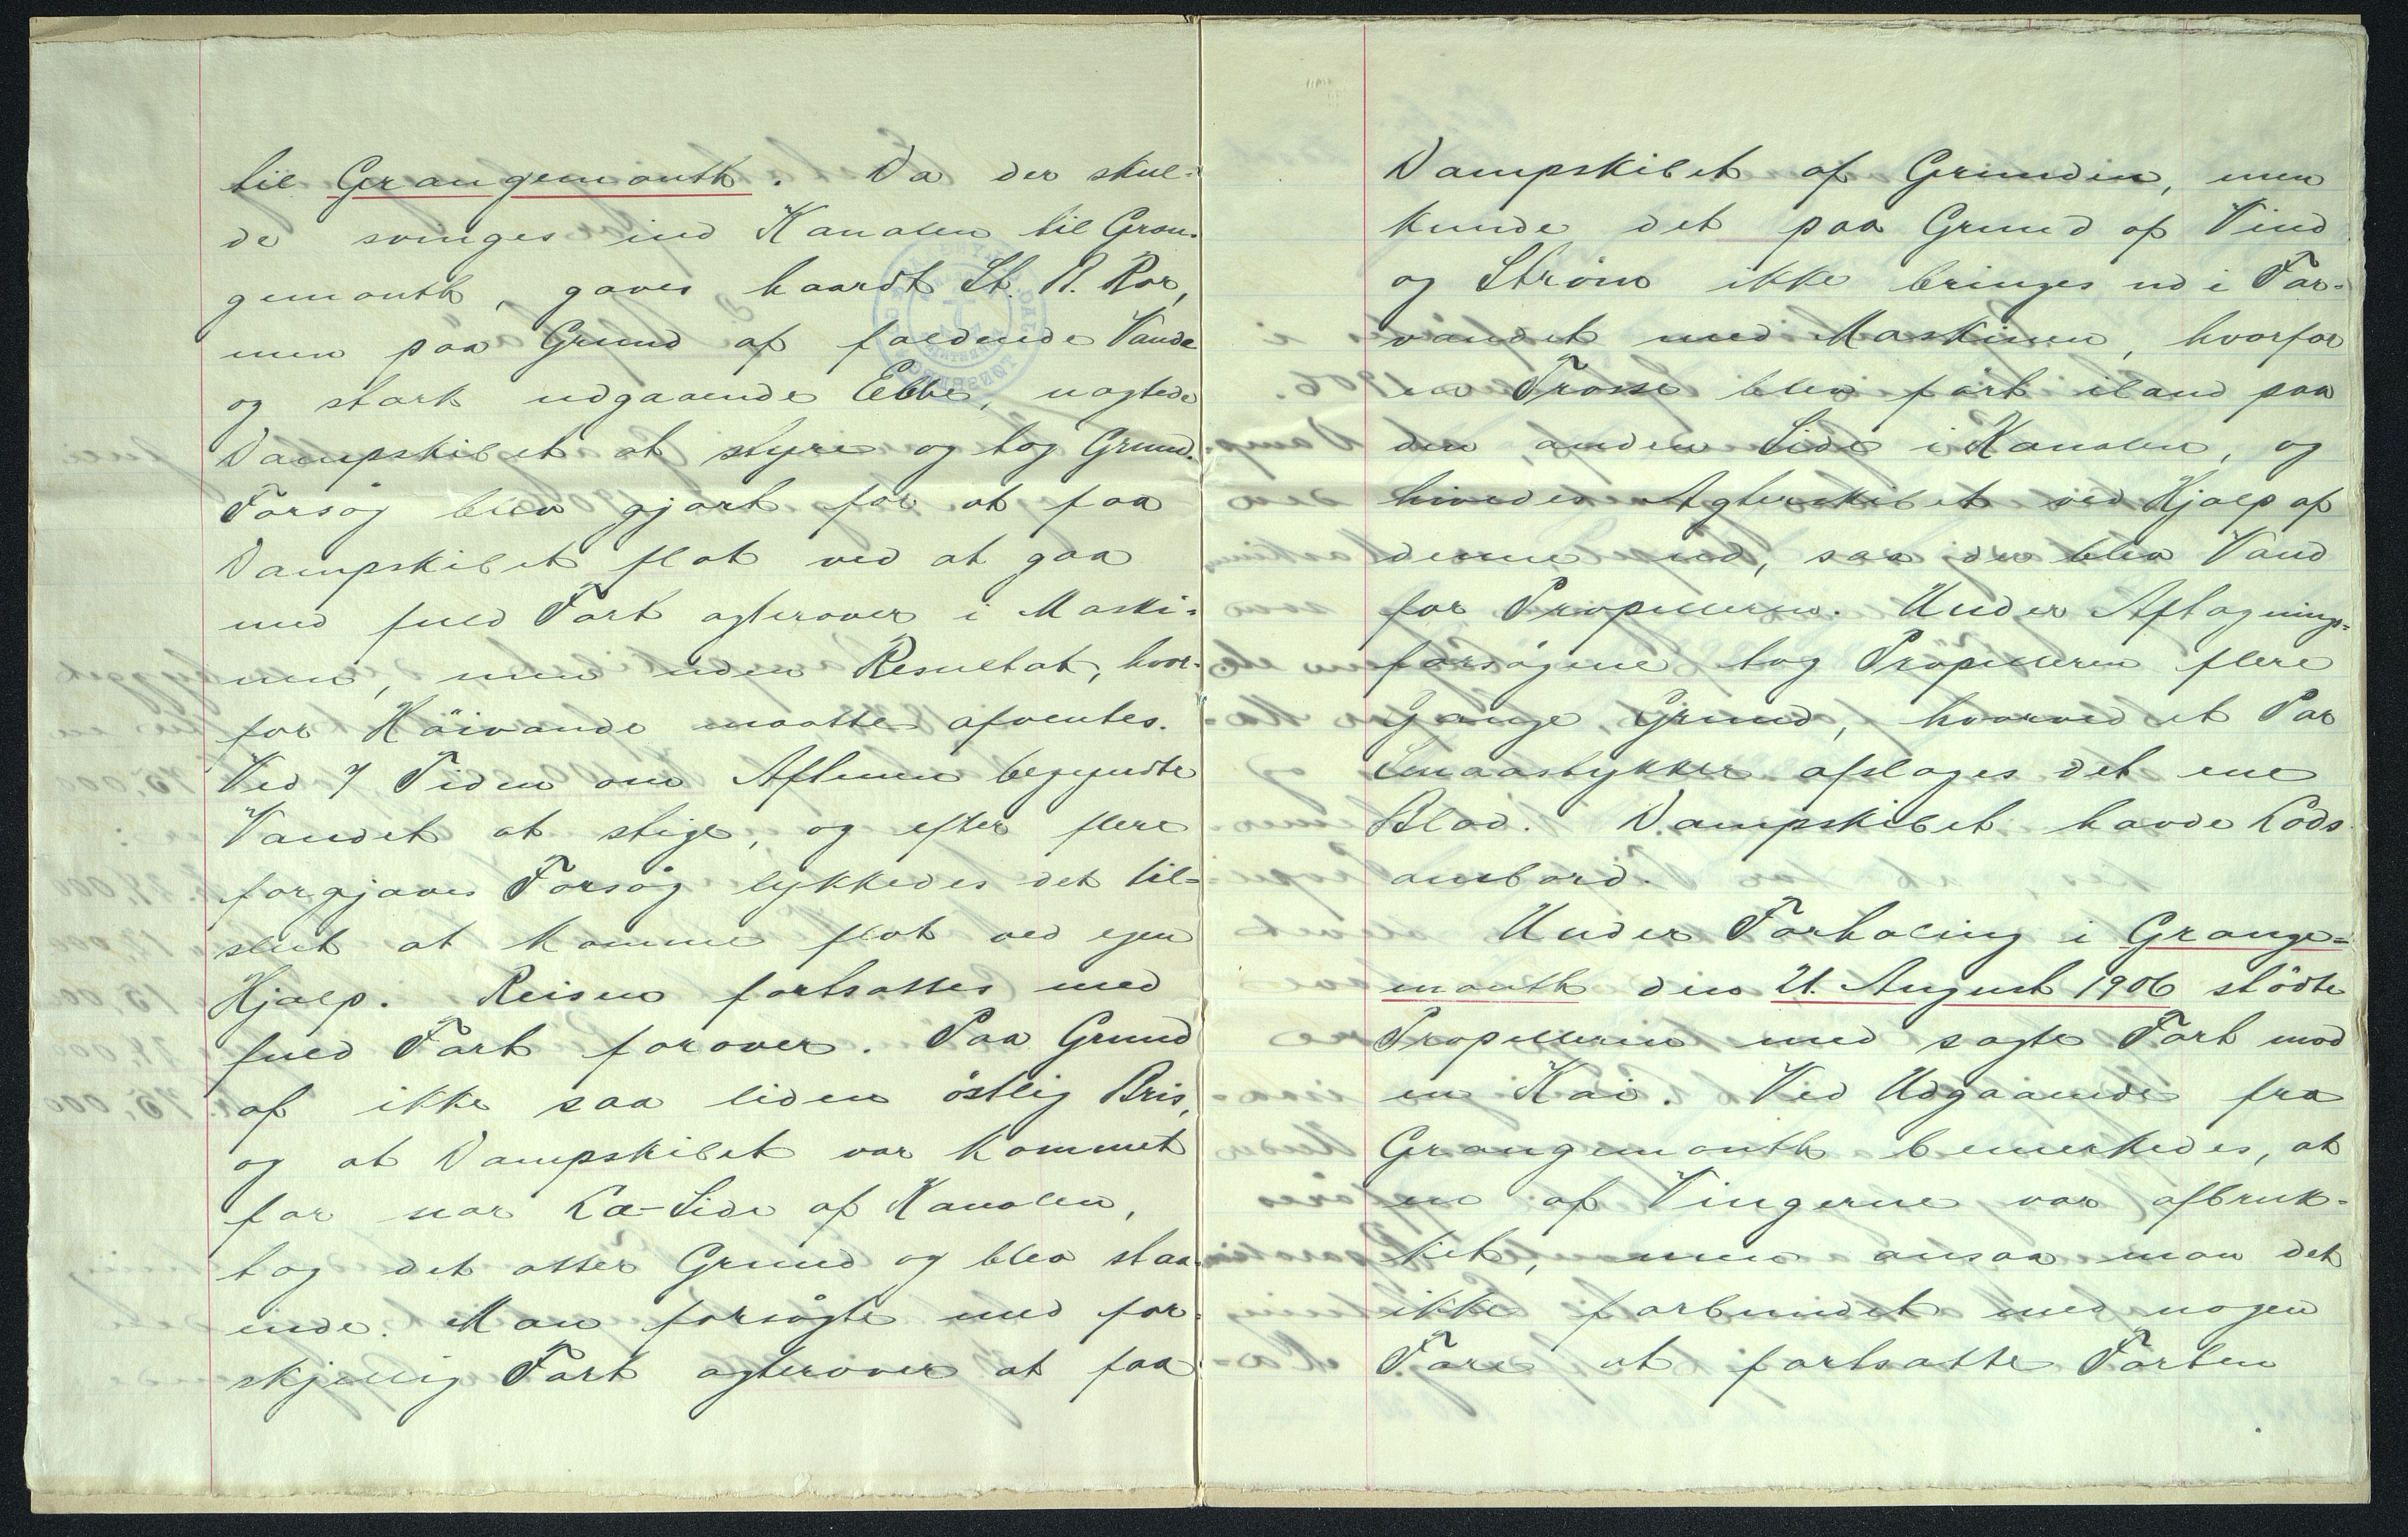 til Grangemouth. Da der skul-
de svinges ind Kanalen til Gran-
gemouth, gaves haardt St. B. Ror,
men paa Grund af faldende Vande
og stærk udgaaende Ebbe, nægtede
Dampskibet at styre og tog Grund.
Forsøg blev gjort for at faa
Dampskibet flot ved at gaa
med fuld Fart agterover i Maski-
nen, men uden Resultat, hvor-
for Höivande maatte afventes.
Ved 7 Tiden om Aftenen begyndte
Vandet at stige, og efter flere
forgjæves Forsög lykkedes det til-
slut at komme flot ved egen
Hjælp. Reisen fortsattes med
fuld Fart forover. Paa Grund
af ikke saa liden östlig Bris,
og at Dampskibet var kommet
for nær Læ-Side af Kanalen,
tog det atter Grund og blev staa-
ende. Man forsögte med for-
skjellig Fart agterover at faa
Dampskibet af Grunden, men
kunde det paa Grund af Vind
og Ström ikke bringes ud i Far-
vandet med Maskinen, hvorfor
en Trosse blev fört iland paa
den anden Side i Kanalen, og
hivedes Agterskibet ved Hjælp af
denne ud, saa der blev Vand
for Propelleren. Under Aftagnings-
forsögene tog Propelleren flere
Gange Grund, hvorved et Par
Smaastykker afsloges det ene
Blad. Dampskibet havde Lods
ombord.
Under Forhaling i Grange-
mouth den 21. August 1906 stödte
Propelleren med sagte Fart mod
en Kai. Ved Udgaaende fra
Grangemouth bemerkedes, at
en af Vingerne var afbruk-
ket, men ansaa man det
ikke forbundet med nogen
Fare at fortsætte Farten